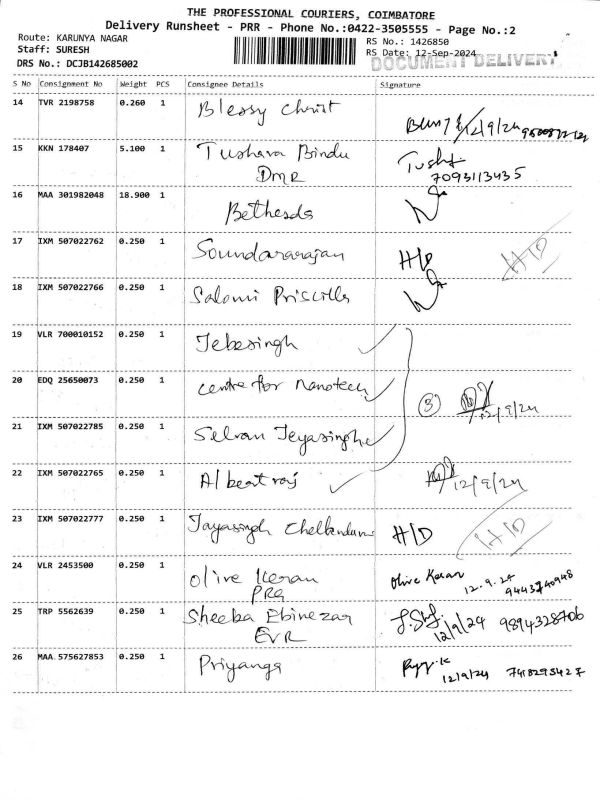 THE PROFESSIONAL COURIERS, COIMBATORE
Delivery Runsheet - PRR - Phone No.:0422-3505555 - Page No.:2
Route: KARUNYA NAGAR
RS No.: 1426850
Staff: SURESH
RS Date: 12-Sep-2024
DOCUMENT DELIVERY
DRS No.: DCJB142685002
S No Consignment No Weight PCS Consignee Details Signature
14 TVR 2198758 0.260 1 Blessy Christ
12/9/24
15 KKN 178407 5.100 1 Tushara Bindu Tush
DMR 7093113435
16 MAA 301982048 18.900 1 Bethesda
17 IXM 507022762 0.250 1 Soundararajan H/D H/D
18 IXM 507022766 0.250 1 Salomi Priscilla
19 VLR 700010152 0.250 1 Jebasingh
20 EDQ 25650073 0.250 1 Centre for Nanotech
3 12/9/24
21 IXM 507022785 0.250 1 Selvan Jeyasinghe
22 IXM 507022765 0.250 1 Albeatraj 12/9/24
23 IXM 507022777 0.250 1 Jayasingh Chellandurai H/D H/D
24 VLR 2453500 0.250 1 Olive Keran Olive Keran
PRG 12.9.24 9443740948
25 TRP 5562639 0.250 1 Sheeba Ebinezar
EVR 12/9/24 9894328706
26 MAA 575627853 0.250 1 Priyanga
12/9/24 7418295427